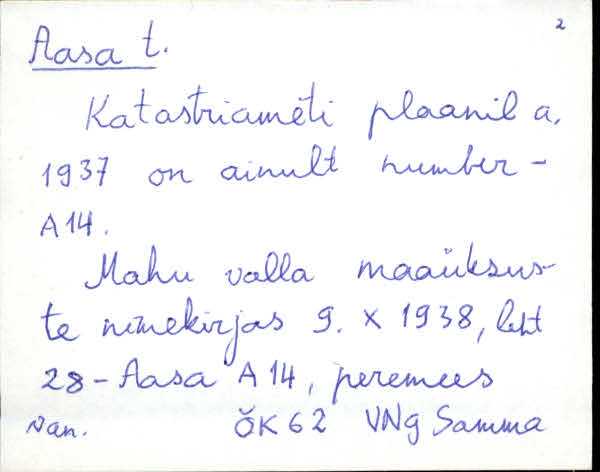 2
Aasa t.
Katastriameti plaanil a.
1937 on ainult number -
A 14.
Mahu valla maaüksus-
te nimekirjas 9. X 1938, leht
28 - Aasa A 14, peremees
van. ÕK 62 VNg Samma